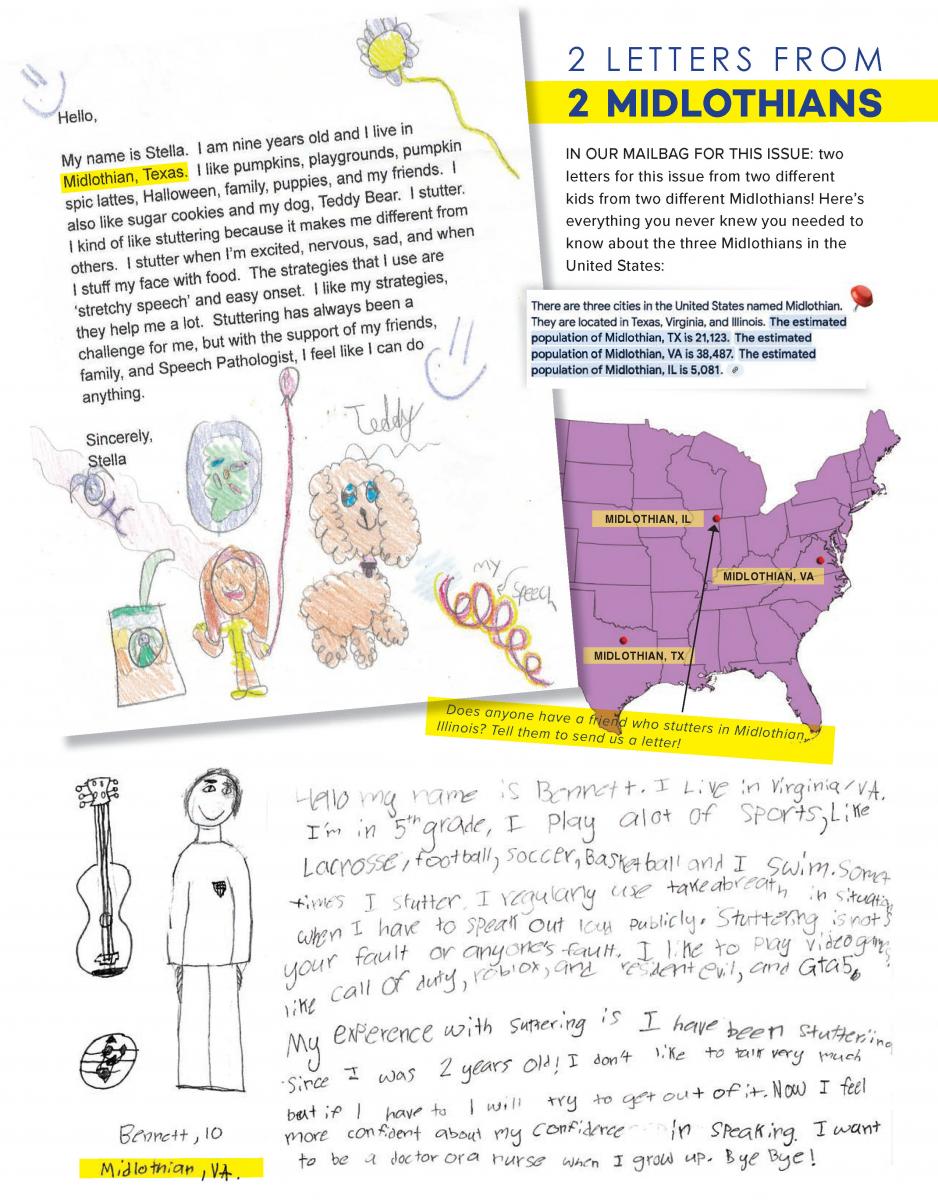 2 LETTERS FROM
2 MIDLOTHIANS
IN OUR MAILBAG FOR THIS ISSUE: two
letters for this issue from two different
kids from two different Midlothians! Here's
everything you never knew you needed to
know about the three Midlothians in the
United States:
There are three cities in the United States named Midlothian.
They are located in Texas, Virginia, and Illinois. The estimated
population of Midlothian, TX is 21,123. The estimated
population of Midlothian, VA is 38,487. The estimated
population of Midlothian, IL is 5,081.
MIDLOTHIAN, IL
MIDLOTHIAN, VA
MIDLOTHIAN, TX
Does anyone have a friend who stutters in Midlothian,
Illinois? Tell them to send us a letter!
Hello,
My name is Stella. I am nine years old and I live in
Midlothian, Texas. I like pumpkins, playgrounds, pumpkin
spic lattes, Halloween, family, puppies, and my friends. I
also like sugar cookies and my dog, Teddy Bear. I stutter.
I kind of like stuttering because it makes me different from
others. I stutter when I'm excited, nervous, sad, and when
I stuff my face with food. The strategies that I use are
'stretchy speech' and easy onset. I like my strategies,
they help me a lot. Stuttering has always been a
challenge for me, but with the support of my friends,
family, and Speech Pathologist, I feel like I can do
anything.
Sincerely,
Stella
Teddy
my
Speech
Hello my name is Bennett. I Live in Virginia/VA.
I'm in 5th grade, I play alot of sports, Like
Lacrosse, football, soccer, Basketball and I swim. Some
times I stutter. I regularly use takeabreath in situations
when I have to speak out publicly. Stuttering is not
your fault or anyone's fault. I like to play videogames
like call of duty, roblox, and resident evil, and Gta5.
My experence with suttering is I have been stutteriing
since I was 2 years old! I don't like to talk very much
but if I have to I will try to get out of it. Now I feel
more confident about my confidence in speaking. I want
to be a doctor or a nurse when I grow up. Bye Bye!
Bennett, 10
Midlothian, VA.